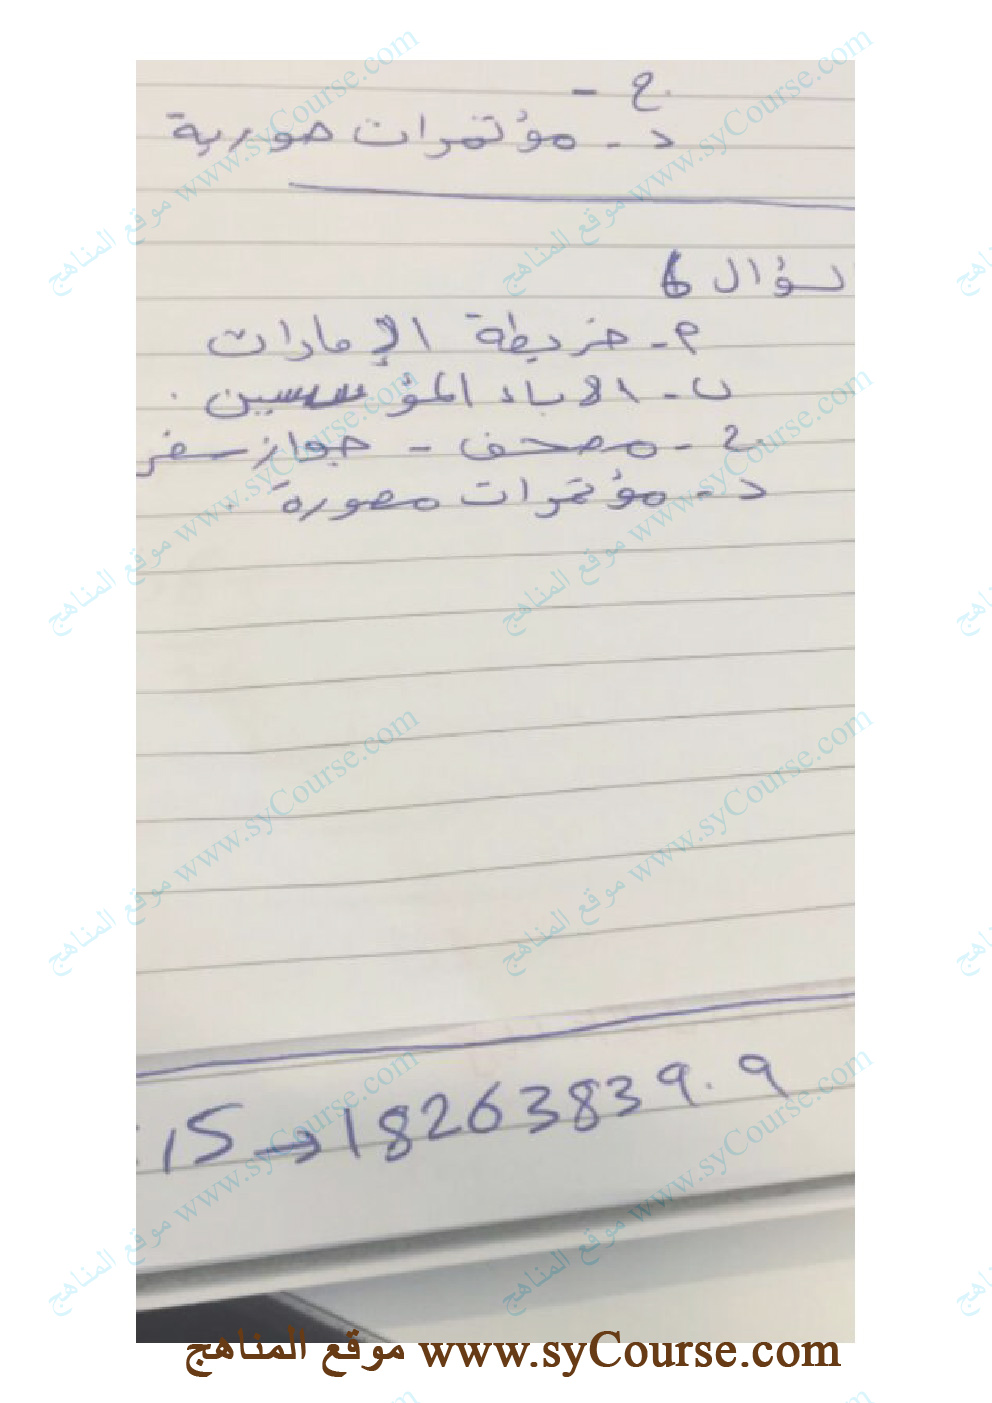 ج -
د - مؤتمرات صورية
لسؤال 6
م - خريطة الإمارات
ب - الاباء المؤسسين .
ج - مصحف - جواز سفر
د - مؤتمرات مصورة .
15 → 18263839.9
موقع المناهج www.syCourse.com